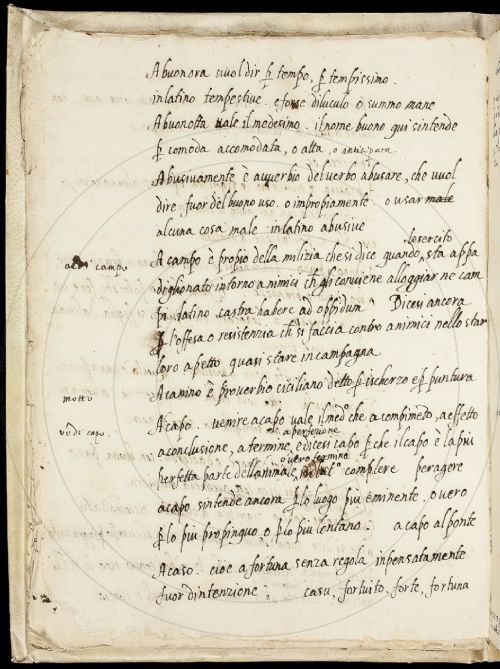 Abuonora vuol dir ꝑ tempo, ꝑ tempissimo.
in latino tempestive. e forse diluculo o summo mane
Abuonotta vale il medesimo. il nome buono qui s'intende
ꝑ comoda accomodata, o atta,
Abusivamente è avverbio del verbo abusare, che vuol
dire fuor del buono uso. o impropiamente. o usar male
alcuna cosa male in latino abusive
lesercito
A campo è propio della milizia che si dice quando, sta appa
campo
diglionato intorno a nimici ch gli conviene alloggiar ne cam
pi. latino castra habere ad oppidum Dicesi ancora
ꝑ l'offesa o resistenza ch si faccia contro a nimici nello star
loro apetto quasi stare in campagna
A camino è proverbio ciciliano detto ꝑ ischerzo e ꝑ puntura
motto
A capo. venire a capo vale il med° che a compimeto, a effetto
capo.
o a perfezione
a conclusione, a termine, e dicesi capo ꝑ che il capo è la più
o vero termine
perfetta parte dell animale, complere peragere
a capo s'intende ancora ꝑ lo luogo più eminente, o vero
ꝑ lo più propinquo, o ꝑ lo più lontano. a capo al ponte
A caso. cioè a fortuna senza regola inpensatamente
fuor d'intenzione. casu, fortuito, forte, fortuna